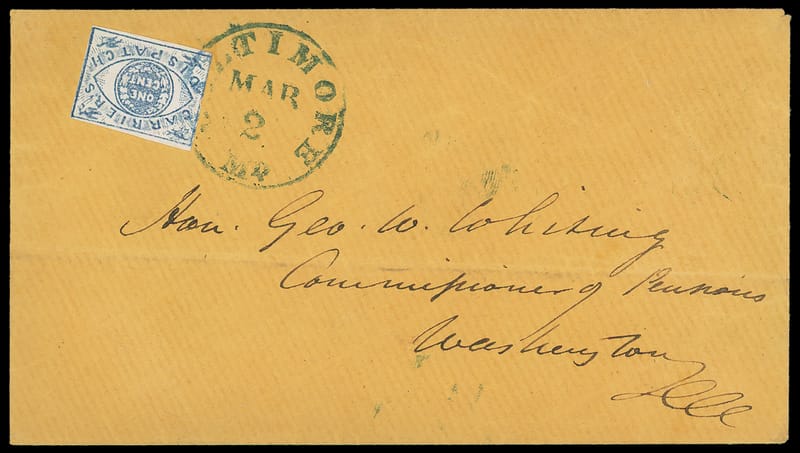 CARRIER'S DISPATCH
ONE CENT
BALTIMORE
MAR
2
Md
Hon. Geo. W. Whiting
Commissioner of Pensions
Washington